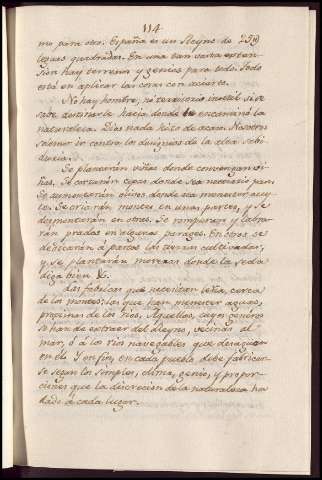 114
mo para otro. España es un Reyno de 25[?]
leguas quadradas. En una tan vasta exten-
sion hay terreno, y genios para todo. Todo
está en aplicar las cosas con acierto.
No hay hombre, ni territorio inutil si se
sabe destinarle hacia donde le encaminó la
naturaleza. Dios nada hizo de acaso. Nosotros
salemos ir contra los designios de la alta sabi-
duria.
Se plantarán viñas donde convengan vi-
ñas. Se cortarán cepas donde sea necesario pan.
Se aumentarán olivos donde sea menester acei-
te. Se criarán montes en unas partes, y se
desmontarán en otras. Se romperán y labra-
rán prados en algunos parages. En otros se
dedicarán á pastos las tierras cultivadas,
y se plantarán moreras donde la seda
diga bien &.
Las fabricas que necesitan leña, cerca
de los montes: las que han menester aguas,
proximas de los rios. Aquellas, cuyos generos
se han de extraer del Reyno, vecinas al
mar, ó á los rios navegables que desaguan
en él. Y en fin, en cada pueblo debe fabricar-
se segun los simples, clima, genio, y propor-
ciones que la discrecion de la naturaleza ha
dado á cada lugar.